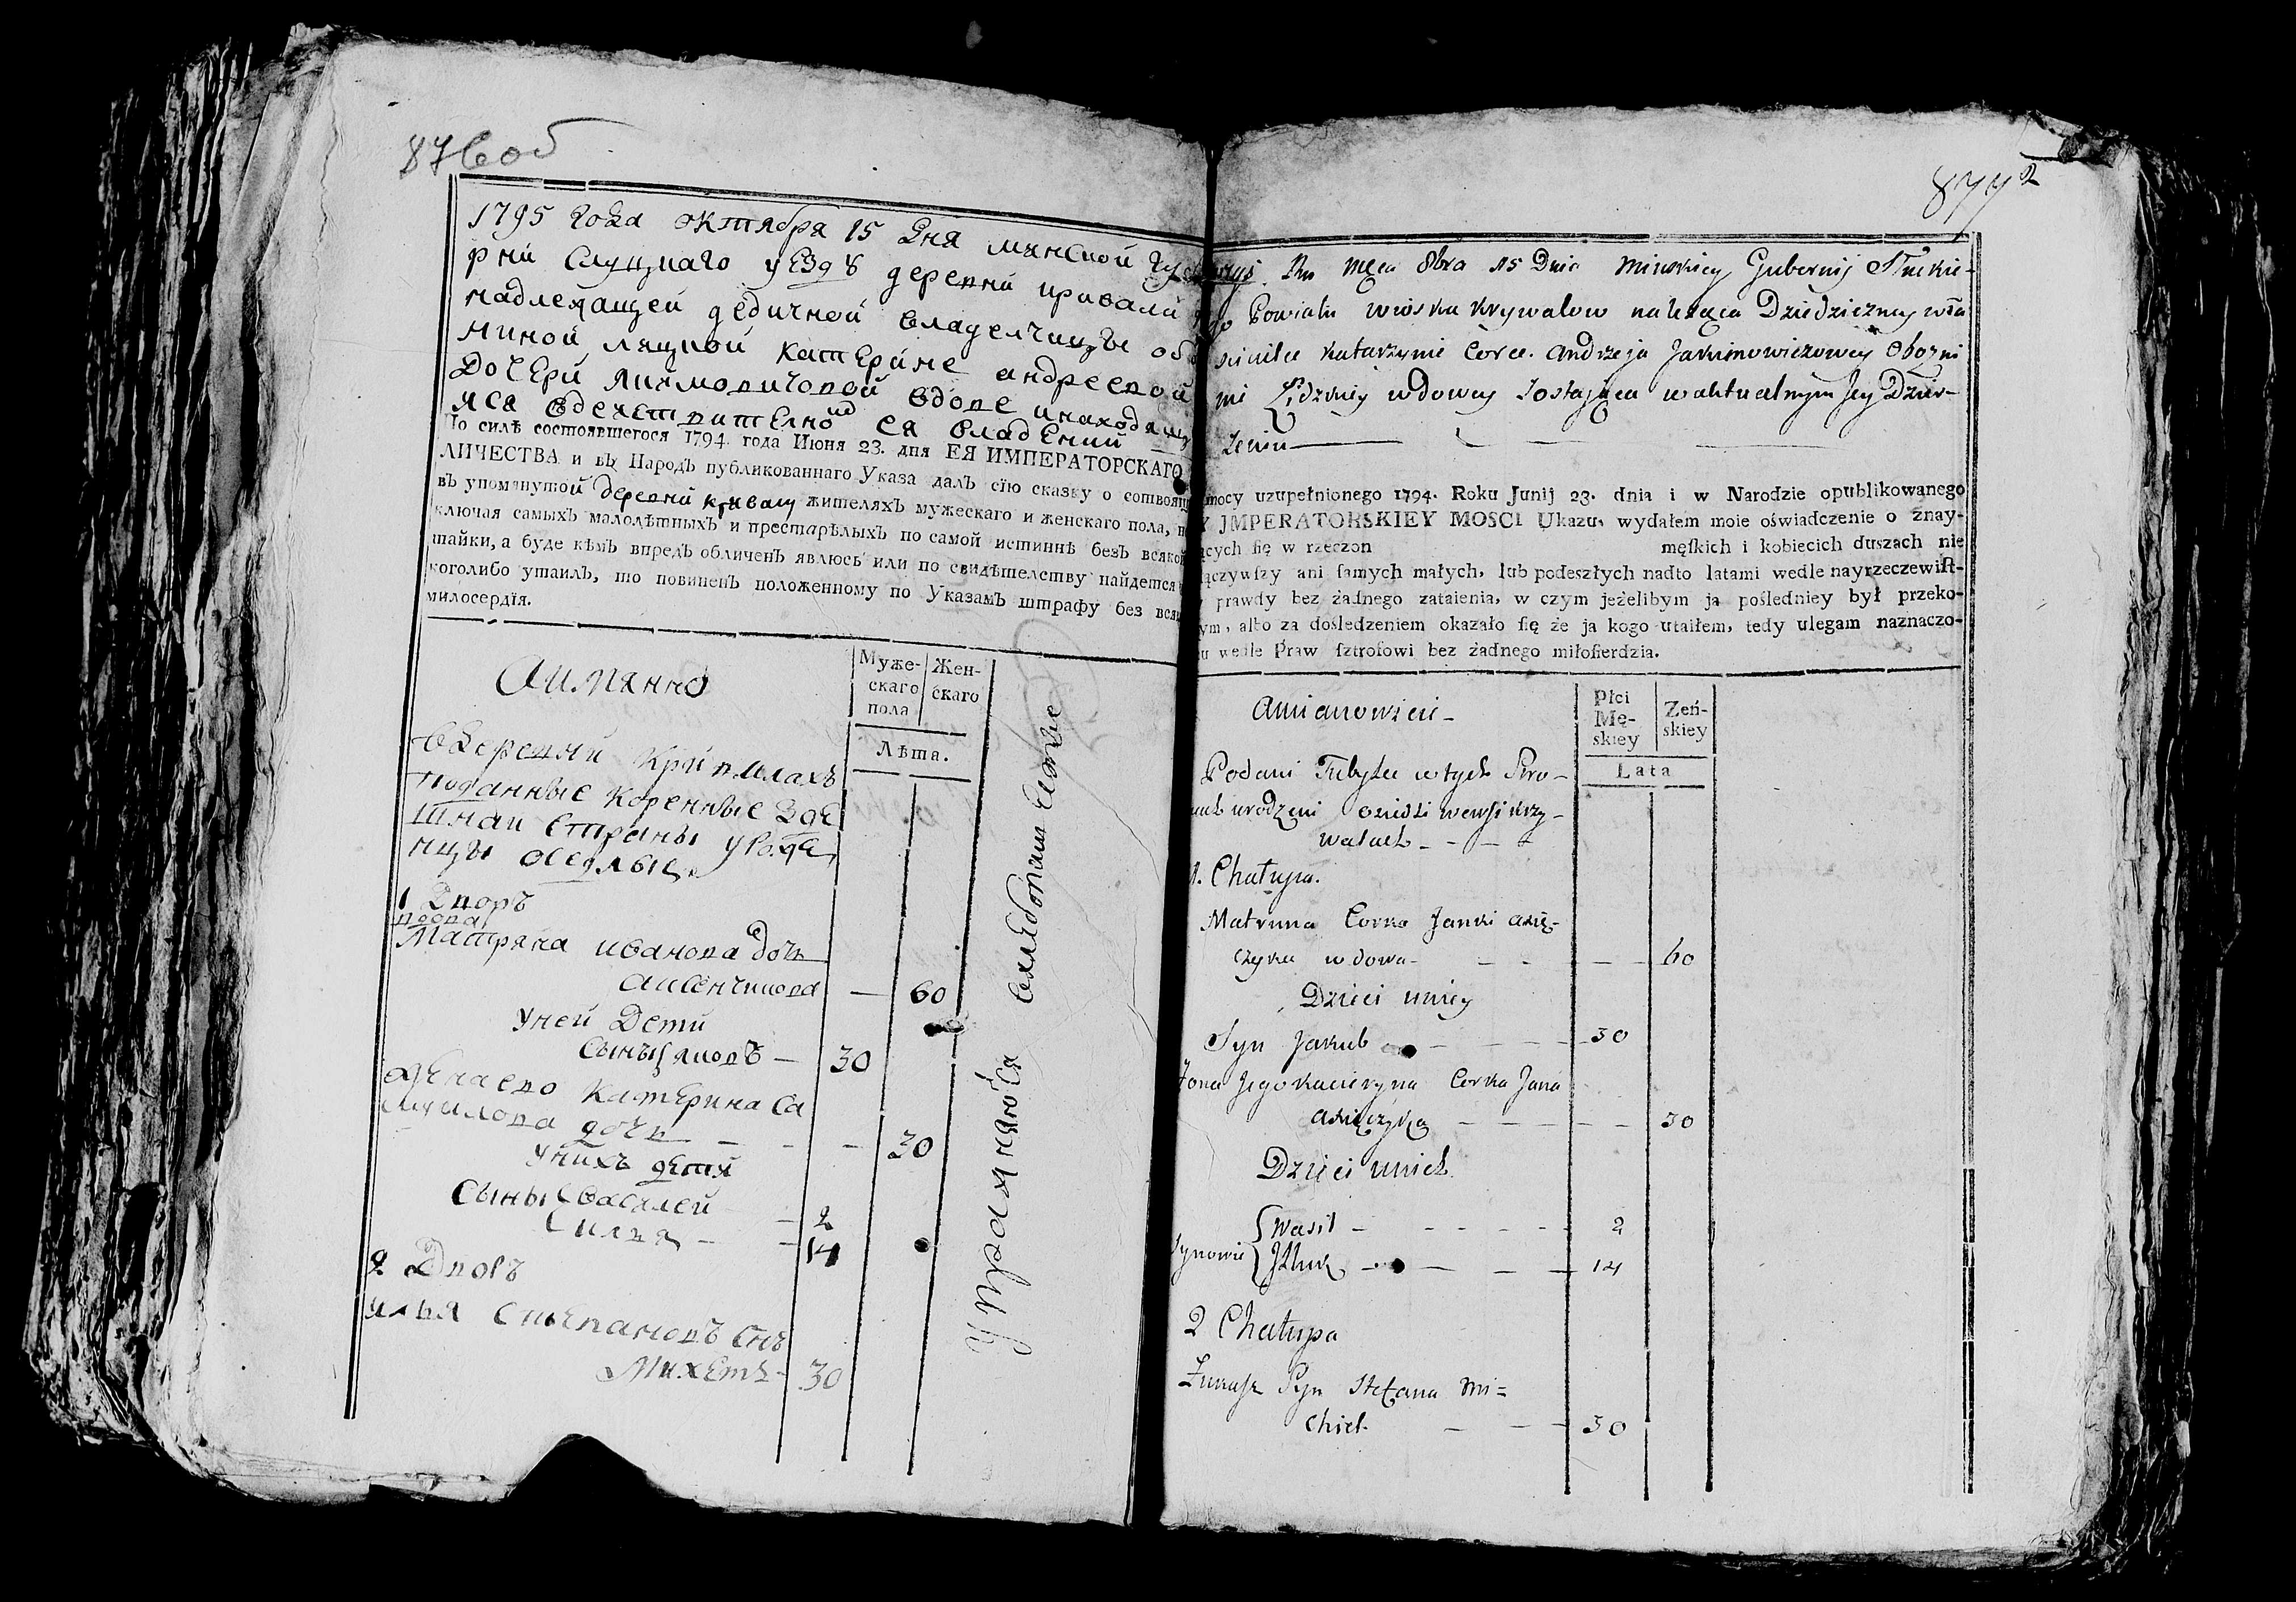 876 об
1795 года октября 15 дня минской губе
рни слуцкаго уезда деревни кривали
надлежащей дедичной владелчицы обо
жиной лидской катерине андреевой
дочери якимовичовой вдове и находящ
яся вдействителном ея владении
По силѣ состоявшегося 1794 года Июня 23. дня ЕЯ ИМПЕРАТОРСКАГО
ЛИЧЕСТВА и въ Народъ публикованнаго Указа далъ сїю сказку о сотвоящ
въ упомянутой деревни кривали жителяхъ мужескаго и женскаго пола, н
ключая самыхъ малолѣтныхъ и престарѣлыхъ по самой истиннѣ безъ всякой
тайки, а буде кѣмъ впредь обличенъ явлюсь или по свидѣтелству найдется
коголибо утаилъ, то повиненъ положенному по Указамъ штрафу без вся
милосердїя.
Аименно
Муже-
скаго
пола
Жен-
скаго
Лѣта.
вдеревни кривалахъ
подданные коренные зде
шнаи страны урожде
нцы оседлые
1 Дворъ
вдова
Матрина иванова дочь
60
У ней дети
сынъ яковъ — 30
Жена его Катерина са
муилова дочь — — — 30
У нихъ дети
Сыны { василей — 2
{ илья — — 14
2 Дворъ
илья степановъ снъ
Михетъ - 30
877
Ru Mca 8bra 15 Dnia Minskiey Gubernij Słuckie-
go Powiatu wioska Krywalow należąca Dziedziczney wła
scicielce Katarzynie Corce Andrzeja Jakimowiczowey Obozni
ni Lidzkiey wdowey zostająca w aktualnym Jey Dzier-
żeniu
mocy uzupełnionego 1794. Roku Junij 23. dnia i w Narodzie opublikowanego
Y JMPERATORSKIEY MOSCI Ukazu, wydałem moie oświadczenie o znay-
ących się w rzeczon męskich i kobiecich duszach nie
ączywszy ani samych małych, lub podeszłych nadto latami wedle nayrzeczewist-
prawdy bez żadnego zataienia, w czym jeżelibym ja pośledniey był przeko-
ym, albo za dośledzeniem okazało się że ja kogo utaiłem, tedy ulegam naznaczo-
u wedle Praw sztrofowi bez żadnego miłosierdzia.
Amianowicie -
Płci
Mę-
skiey
Zeń-
skiey
Lata
Podani Tubylce w tych Stro-
nach urodzeni osiedli we wsi Krzy-
walach - - - -
1. Chałupa.
Matruna Corka Janki
wdowa - — - - — — 60
Dzieci u niey
Syn Jakub — — — 30
Żona Jego Kacieryna Corka Jana
— — — — 30
Dzieci u nich
Synowie { Wasil — - - - 2
{ Illuk — — — 14
2 Chałupa
Łukasz Syn Stefana Mi=
chiet. — — 30